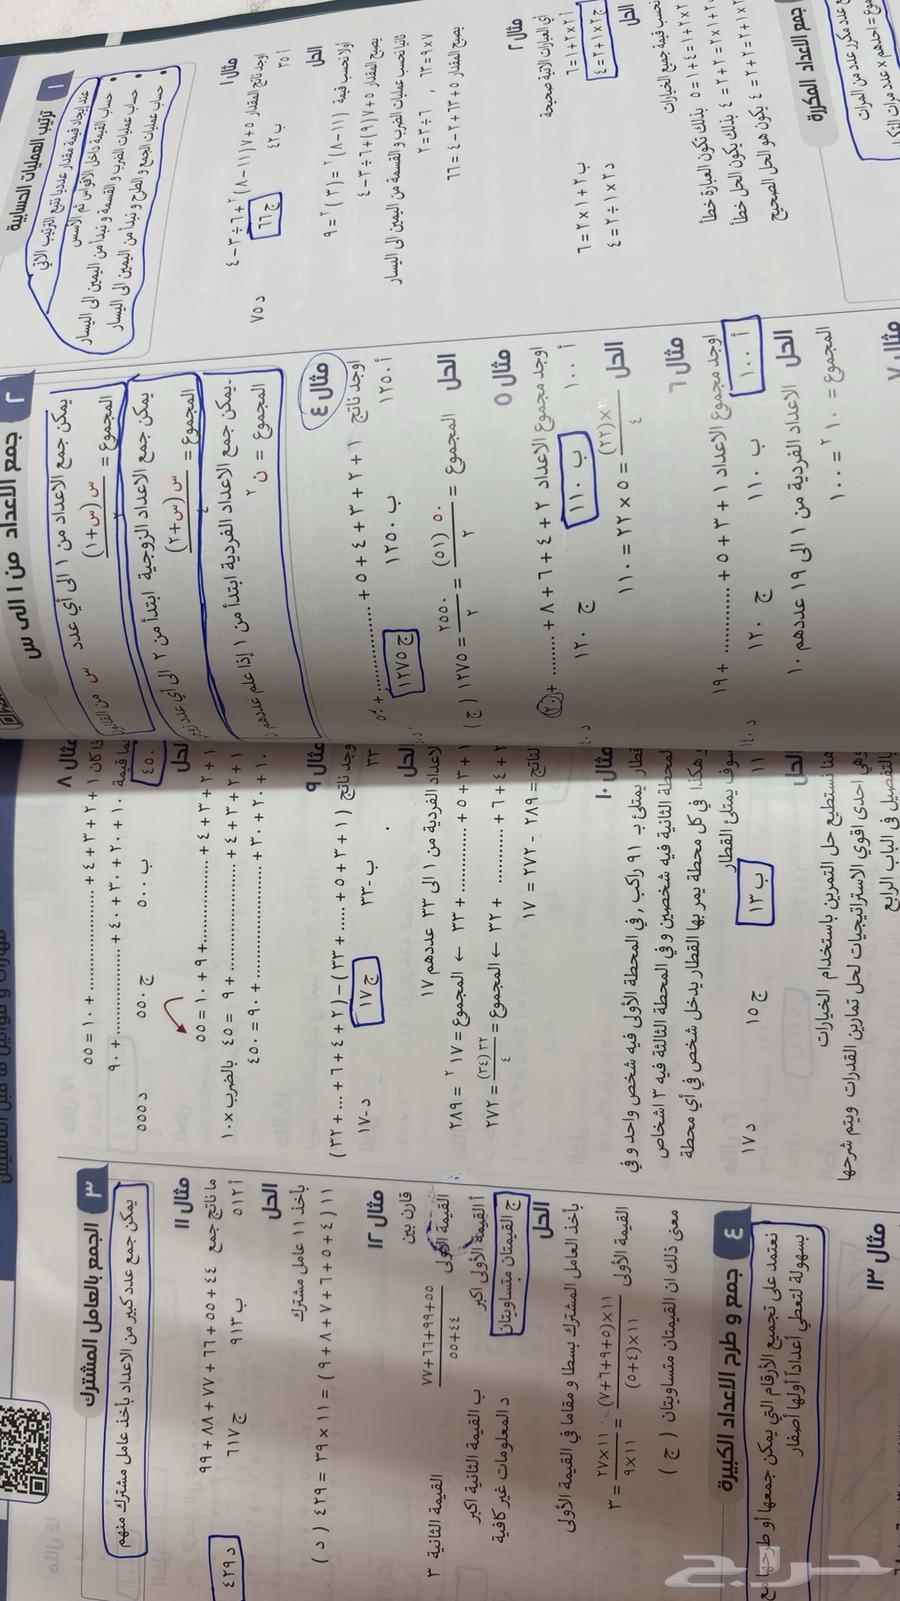 ١ ترتيب العمليات الحسابية
عند إيجاد قيمة مقدار عدديا نتبع الترتيب الآتي
• حساب القيمة داخل الاقواس ثم الأسس
• حساب عمليات الضرب و القسمة و نبدأ من اليمين الى اليسار
• حساب عمليات الجمع و الطرح و نبدأ من اليمين الى اليسار
مثال ١
اوجد ناتج المقدار ٥+٧(١١−٨)٢+٦÷٣−٤
أ ٣٥ ب ٤٢ ج ٦٦ د ٧٥
الحل
اولا نحسب قيمة (١١−٨)٢ = (٣)٢ = ٩
يصبح المقدار ٥+٧(٩)+٦÷٣−٤
ثانيا نحسب عمليات الضرب و القسمة من اليمين الى اليسار
٧×٩ = ٦٣ , ٦÷٣ = ٢
يصبح المقدار ٥+٦٣+٢−٤ = ٦٦
مثال ٢
أي العبارات الآتية صحيحة
أ ٢×٢+١=٦ ب ٢+١×٢=٦
ج ٢×١+٢=٤ د ٢×١÷٢=٤
الحل
نحسب قيمة جميع الخيارات
بذلك تكون العبارة خطأ
بذلك يكون الحل خطأ
يكون هو الحل الصحيح
جمع الاعداد المكررة
٢ جمع الاعداد من ١ الى س
يمكن جمع الاعداد من ١ الى أي عدد س من القانون
المجموع = س(س+١)/٢
يمكن جمع الاعداد الزوجية ابتدأ من ٢ الى أي عدد زوجي
المجموع = س(س+٢)/٤
يمكن جمع الاعداد الفردية ابتدأ من ١ إذا علم عددهم ن
المجموع = ن٢
مثال ٤
اوجد ناتج ١+٢+٣+٤+٥+..............+٥٠
أ ١٢٥٠ ب ١٢٥٠ ج ١٢٧٥
الحل
المجموع = ٥٠(٥١)/٢ = ٢٥٥٠/٢ = ١٢٧٥ (ج)
مثال ٥
اوجد مجموع الاعداد ٢+٤+٦+٨+.......+٢٠
أ ١٠٠ ب ١١٠ ج ١٢٠
الحل
٢٠(٢٢)/٤ = ٥×٢٢ = ١١٠
مثال ٦
اوجد مجموع الاعداد ١+٣+٥+............+١٩
أ ١٠٠ ب ١١٠ ج ١٢٠ د ١٤٠
الحل
الاعداد الفردية من ١ الى ١٩ عددهم ١٠
المجموع = ١٠٢ = ١٠٠
مثال ٧
مثال ٨
١+٢+٣+٤+..............+١٠=٥٥
١٠+٢٠+٣٠+٤٠+..............+٩٠
٤٥٠ ب ٥٠٠ ج ٥٥٠ د ٥٥٥
الحل
١+٢+٣+٤+............+٩+١٠=٥٥
١+٢+٣+٤+..............+٩=٤٥ بالضرب ×١٠
١٠+٢٠+٣٠+..............+٩٠=٤٥٠
مثال ٩
وجد ناتج (١+٣+٥+.....+٣٣)−(٢+٤+٦+...+٣٢)
٣٣ ب −٣٣ ج ١٧ د −١٧
الحل
لاعداد الفردية من ١ الى ٣٣ عددهم ١٧
١+٣+٥+............+٣٣ ← المجموع = ١٧٢ = ٢٨٩
٢+٤+٦+...........+٣٢ ← المجموع = ٣٢(٣٤)/٤ = ٢٧٢
لناتج = ٢٨٩−٢٧٢=١٧
مثال ١٠
قطار يمتلئ بـ ٩١ راكب , في المحطة الأولى فيه شخص واحد و في
لمحطة الثانية فيه شخصين و في المحطة الثالثة فيه ٣ اشخاص
و هكذا في كل محطة يمر بها القطار يدخل شخص في أي محطة
سوف يمتلئ القطار
١١ ب ١٣ ج ١٥ د ١٧
الحل
هنا نستطيع حل التمرين باستخدام الخيارات
وهي احدى اقوي الاستراتيجيات لحل تمارين القدرات ويتم شرحها
بالتفصيل في الباب الرابع
٣ الجمع بالعامل المشترك
يمكن جمع عدد كبير من الاعداد بأخذ عامل مشترك منهم
مثال ١١
ما ناتج جمع ٤٤+٥٥+٦٦+٧٧+٨٨+٩٩
أ ٥١٢ ب ٩١٣ ج ٦١٧ د ٤٢٩
الحل
بأخذ ١١ عامل مشترك
١١(٤+٥+٦+٧+٨+٩) = ١١×٣٩ = ٤٢٩ (د)
مثال ١٢
قارن بين
القيمة الأولى ٥٥+٩٩+٦٦+٧٧/٤٤+٥٥ القيمة الثانية ٣
أ القيمة الأولى اكبر ب القيمة الثانية اكبر
ج القيمتان متساويتان د المعلومات غير كافية
الحل
بأخذ العامل المشترك بسطا و مقاما في القيمة الأولى
القيمة الأولى = ١١×(٥+٩+٦+٧)/١١×(٤+٥) = ١١×٢٧/١١×٩ = ٣
معنى ذلك ان القيمتان متساويتان (ج)
٤ جمع و طرح الاعداد الكبيرة
نعتمد على تجميع الأرقام التي يمكن جمعها أو طرحها مع
بسهولة لتعطي أعداداً أولها أصفار
مثال ١٣
حراج